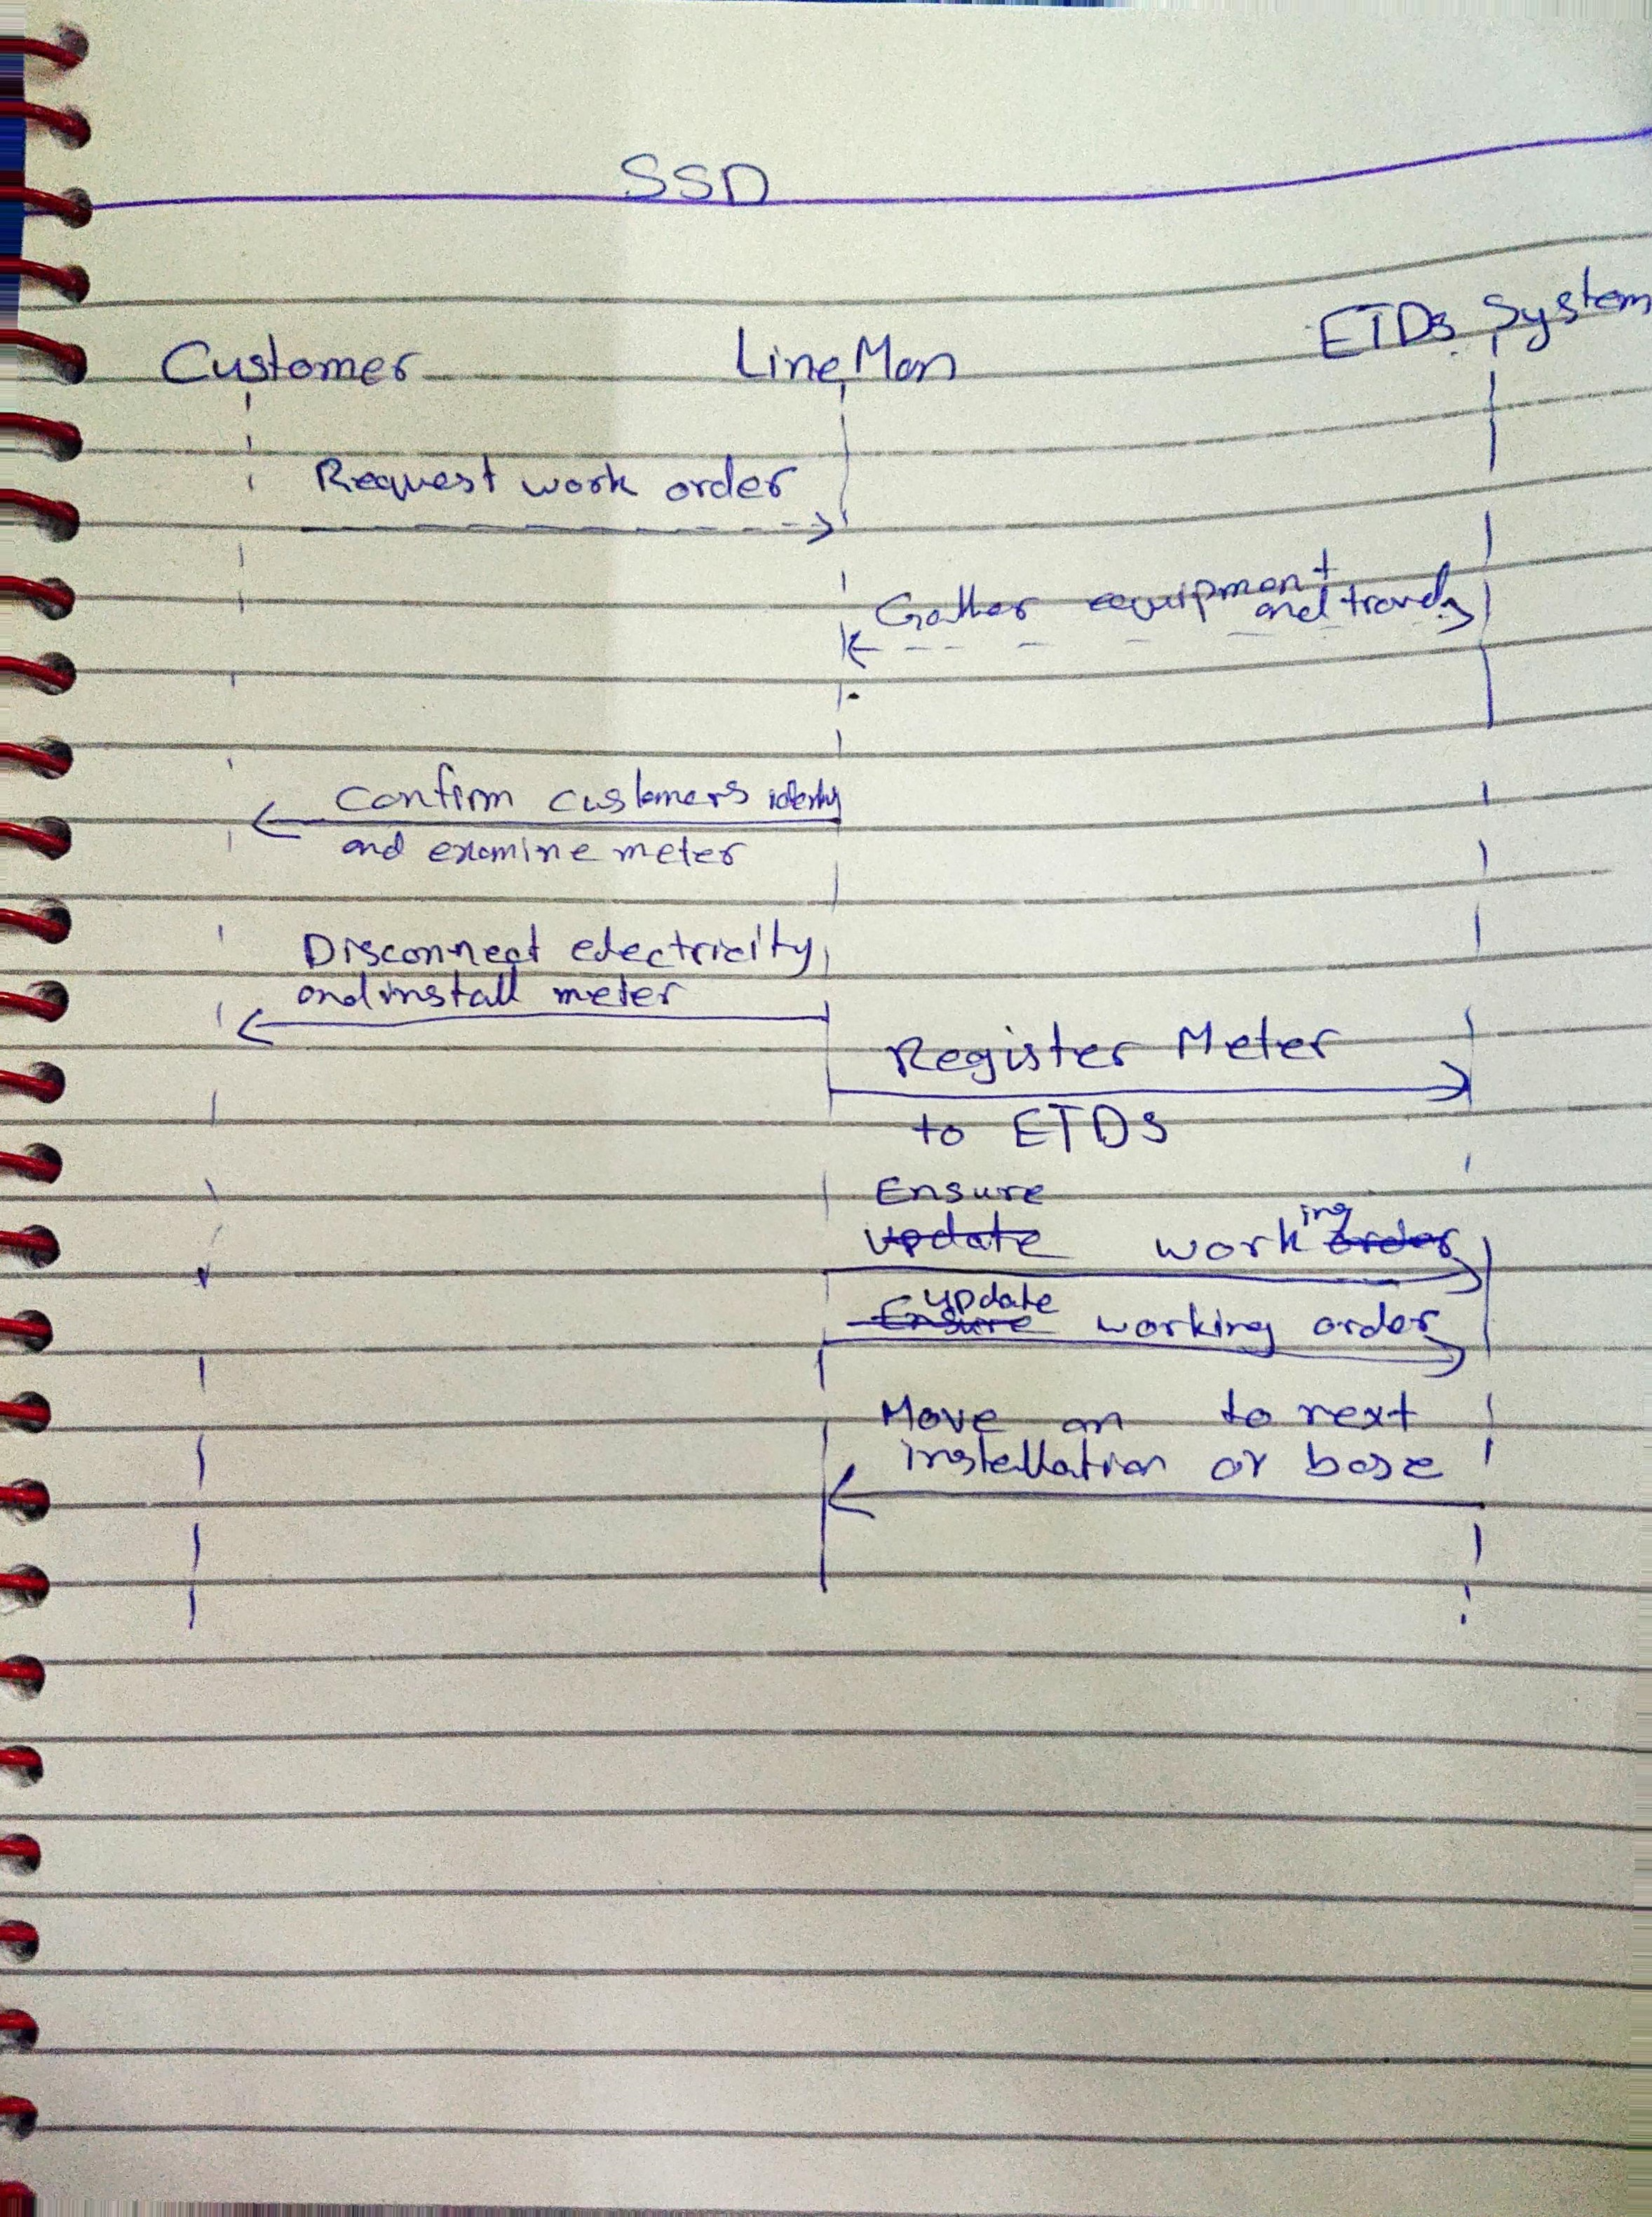 SSD
Customer LineMan ETDs System
Request work order
Gather equipment
and travel
Confirm customers identity
and examine meter
Disconnect electricity
and install meter
Register Meter
to ETDs
Ensure
update working order
Ensure update working order
Move on to next
installation or base